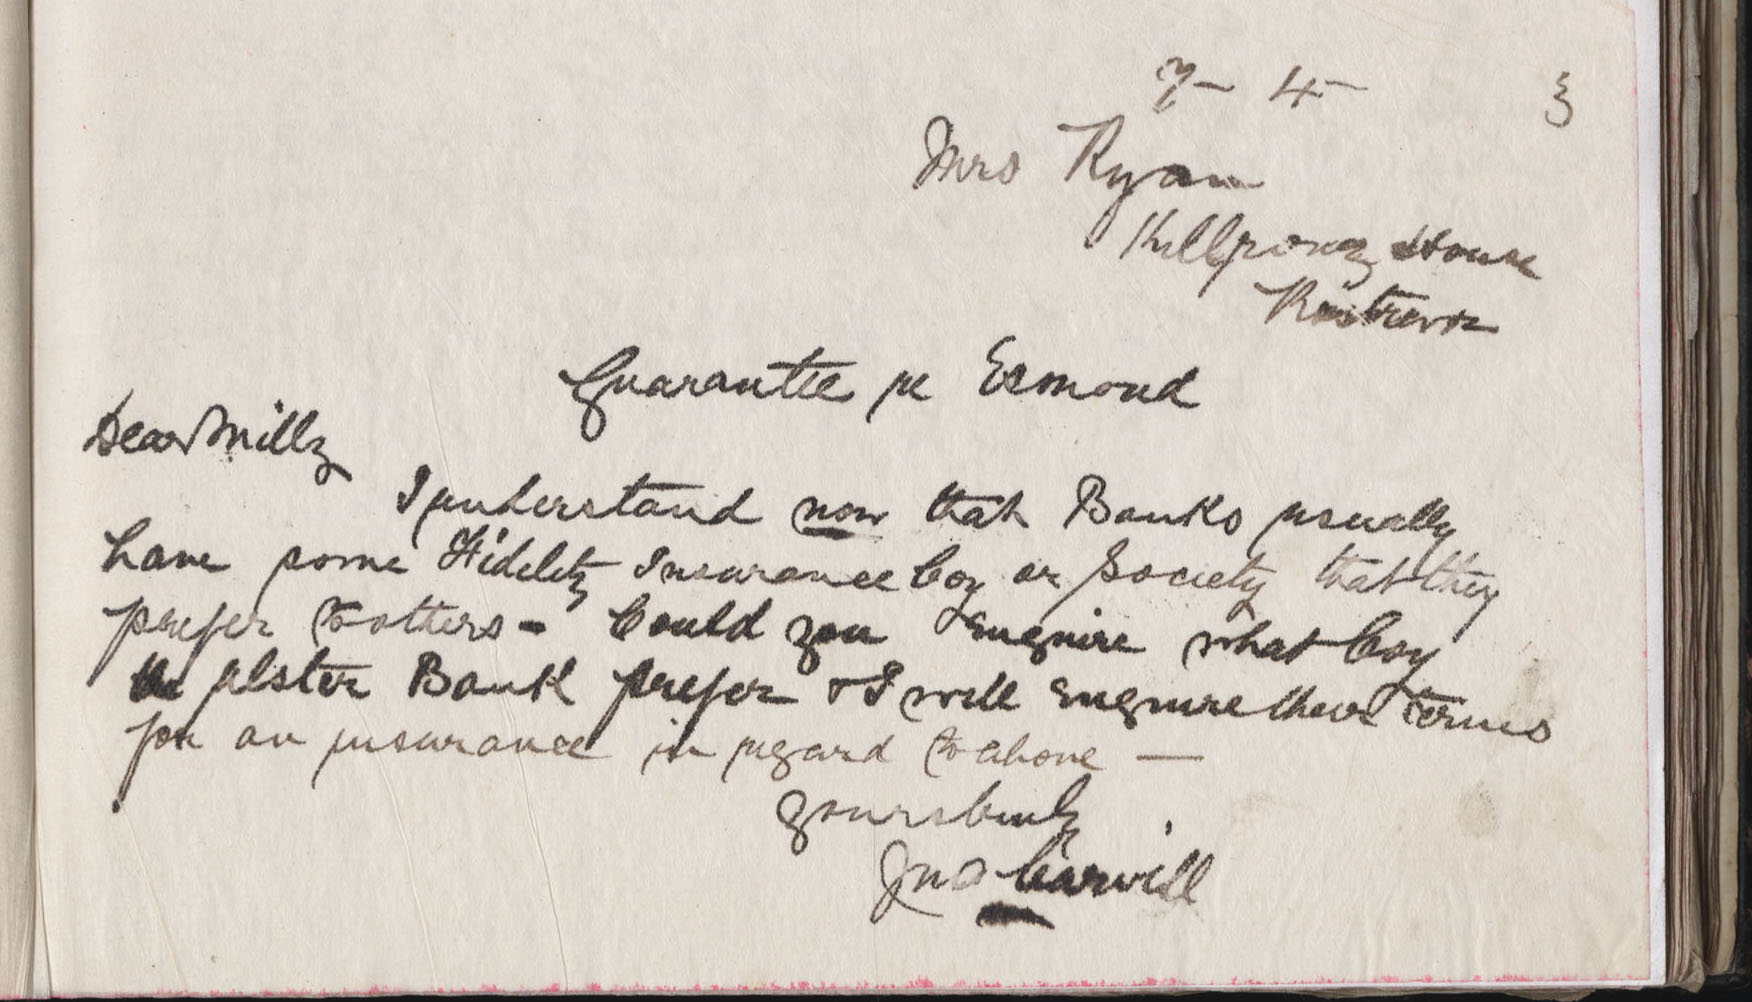 7 - 4 - 3
Mrs Ryan
Killowen House
Rostrevor
Guarantee re Esmond
Dear Milly
I understand now that Banks usually
have some Fidelity Insurance Coy or Society that they
prefer to others - Could you enquire what Coy
the Ulster Bank prefer & I will enquire their terms
for an insurance in regard to above —
yours truly
Jno Carvill